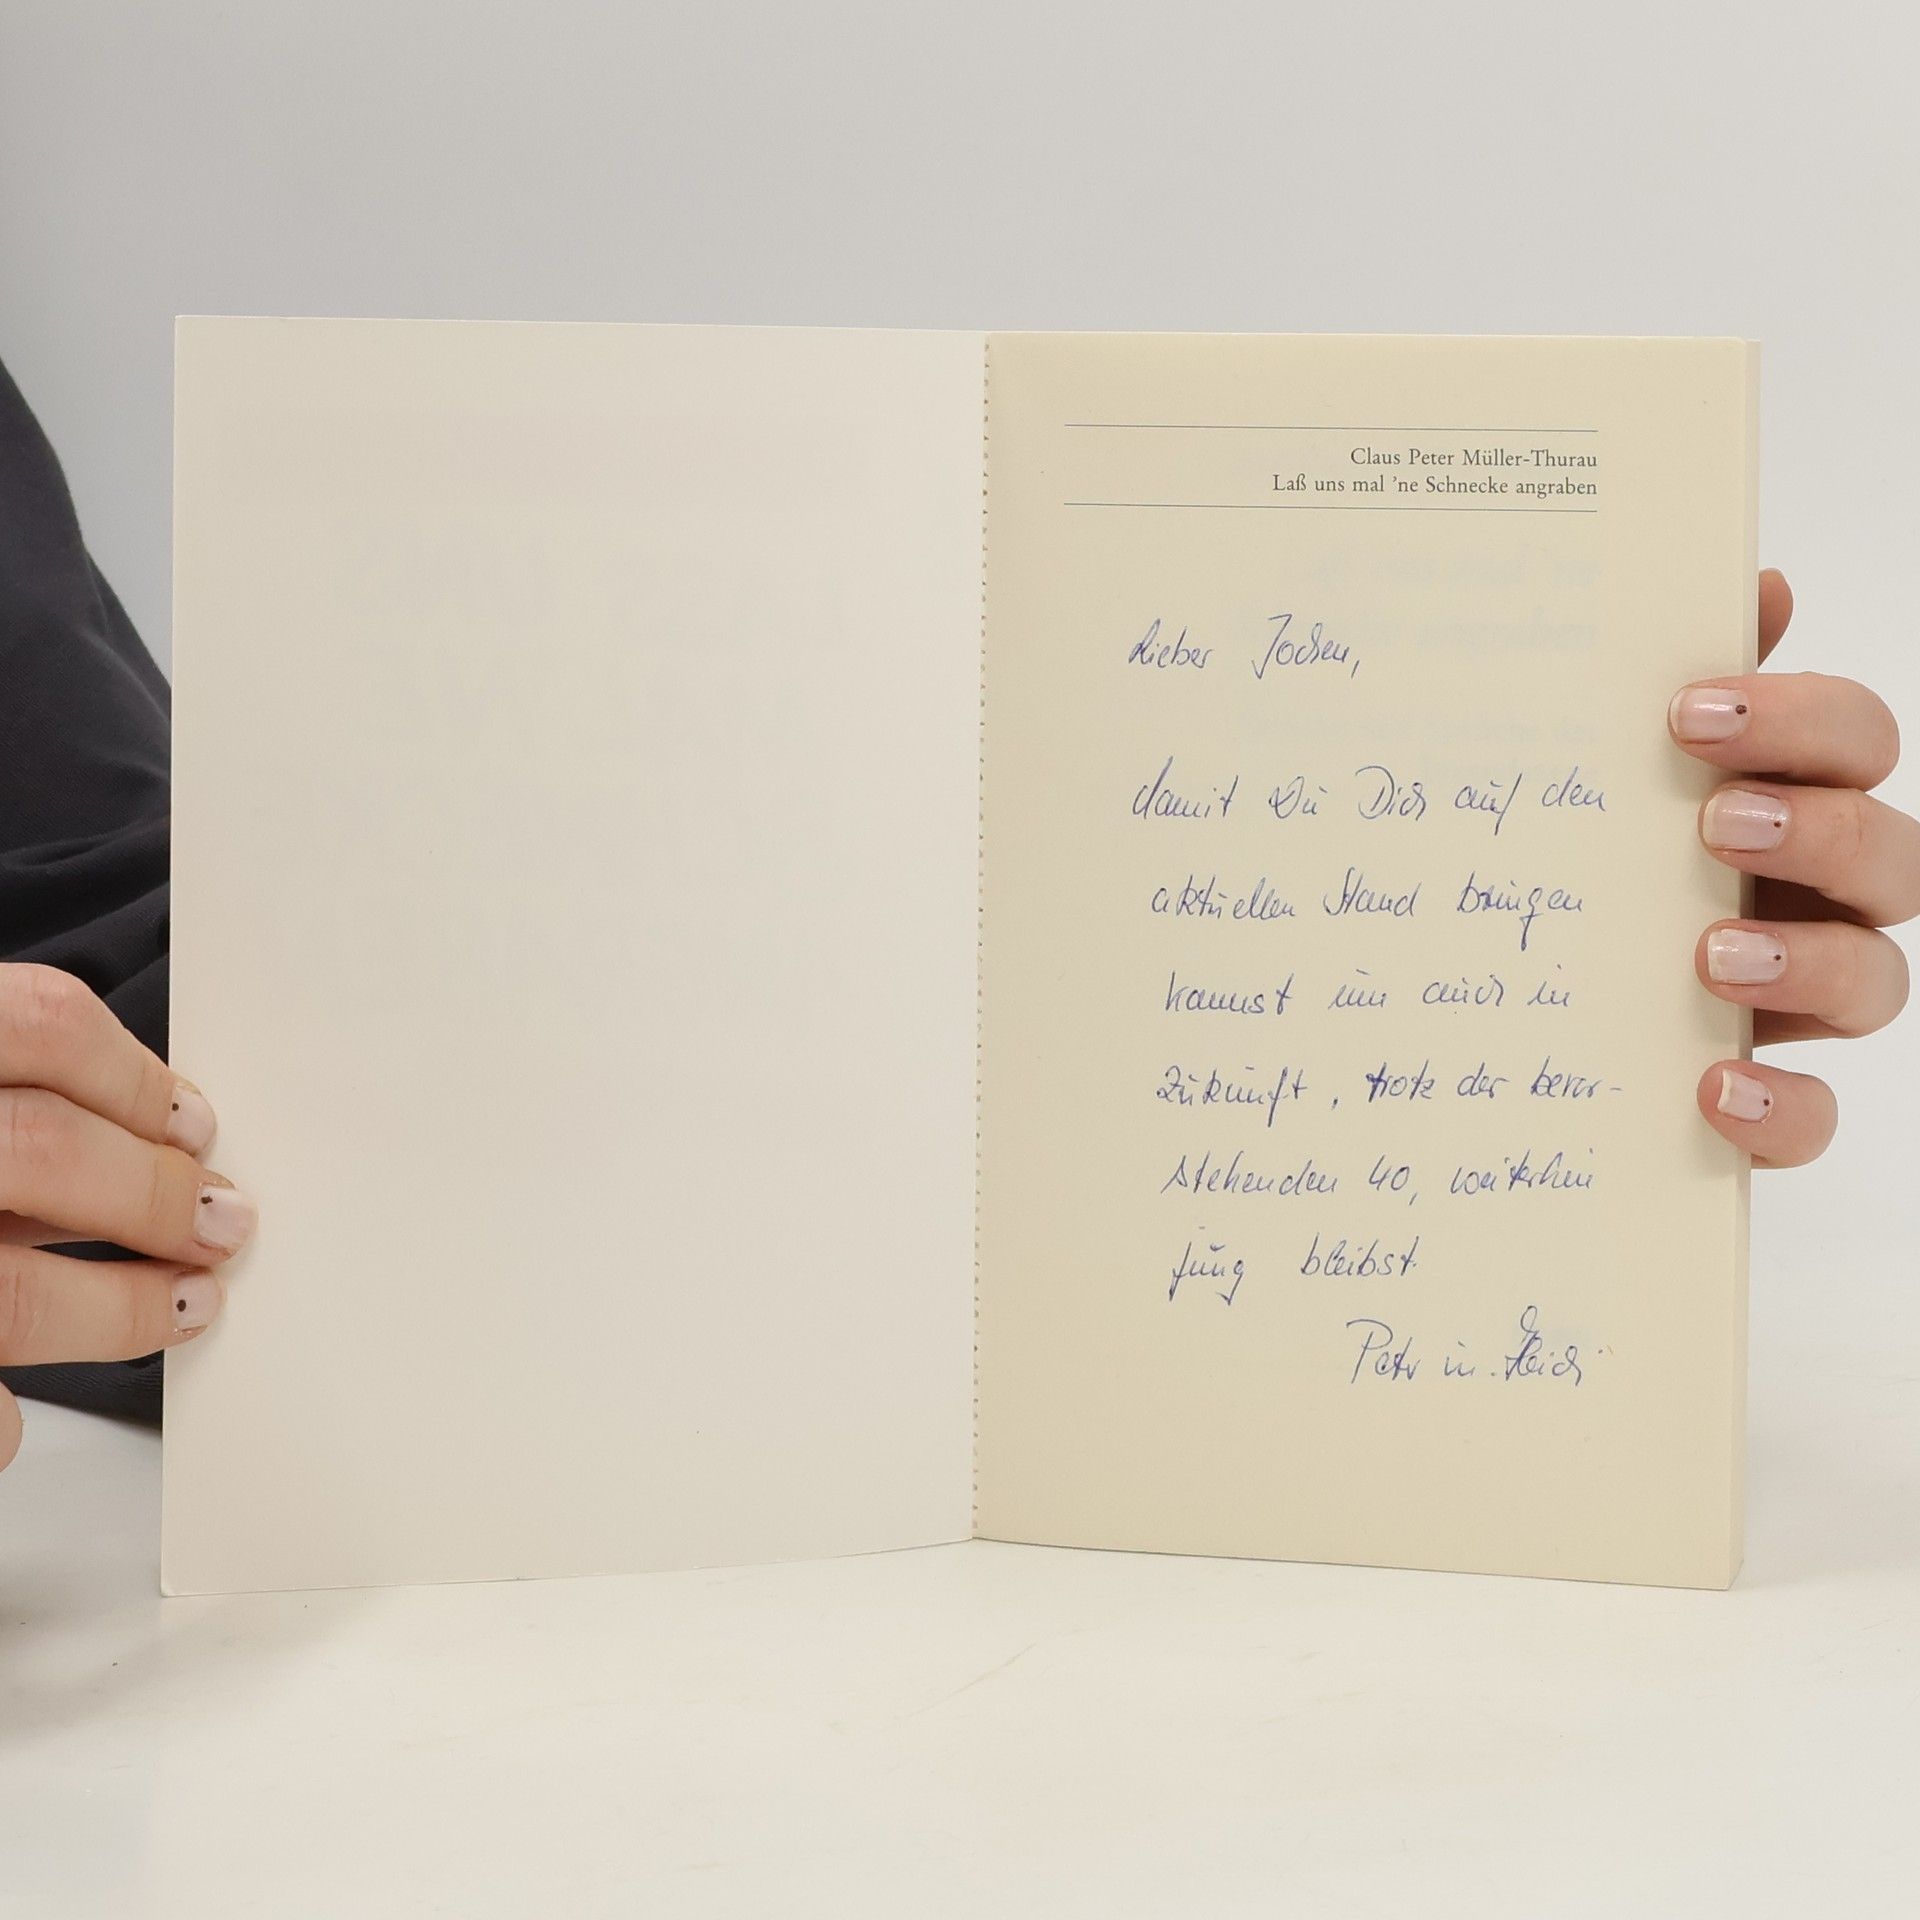 Claus Peter Müller-Thurau
Laß uns mal 'ne Schnecke angraben
Lieber Jochen,
damit Du Dich auf den
aktuellen Stand bringen
kannst um auch in
Zukunft, trotz der bevor-
stehenden 40, weiterhin
jung bleibst.
Peter